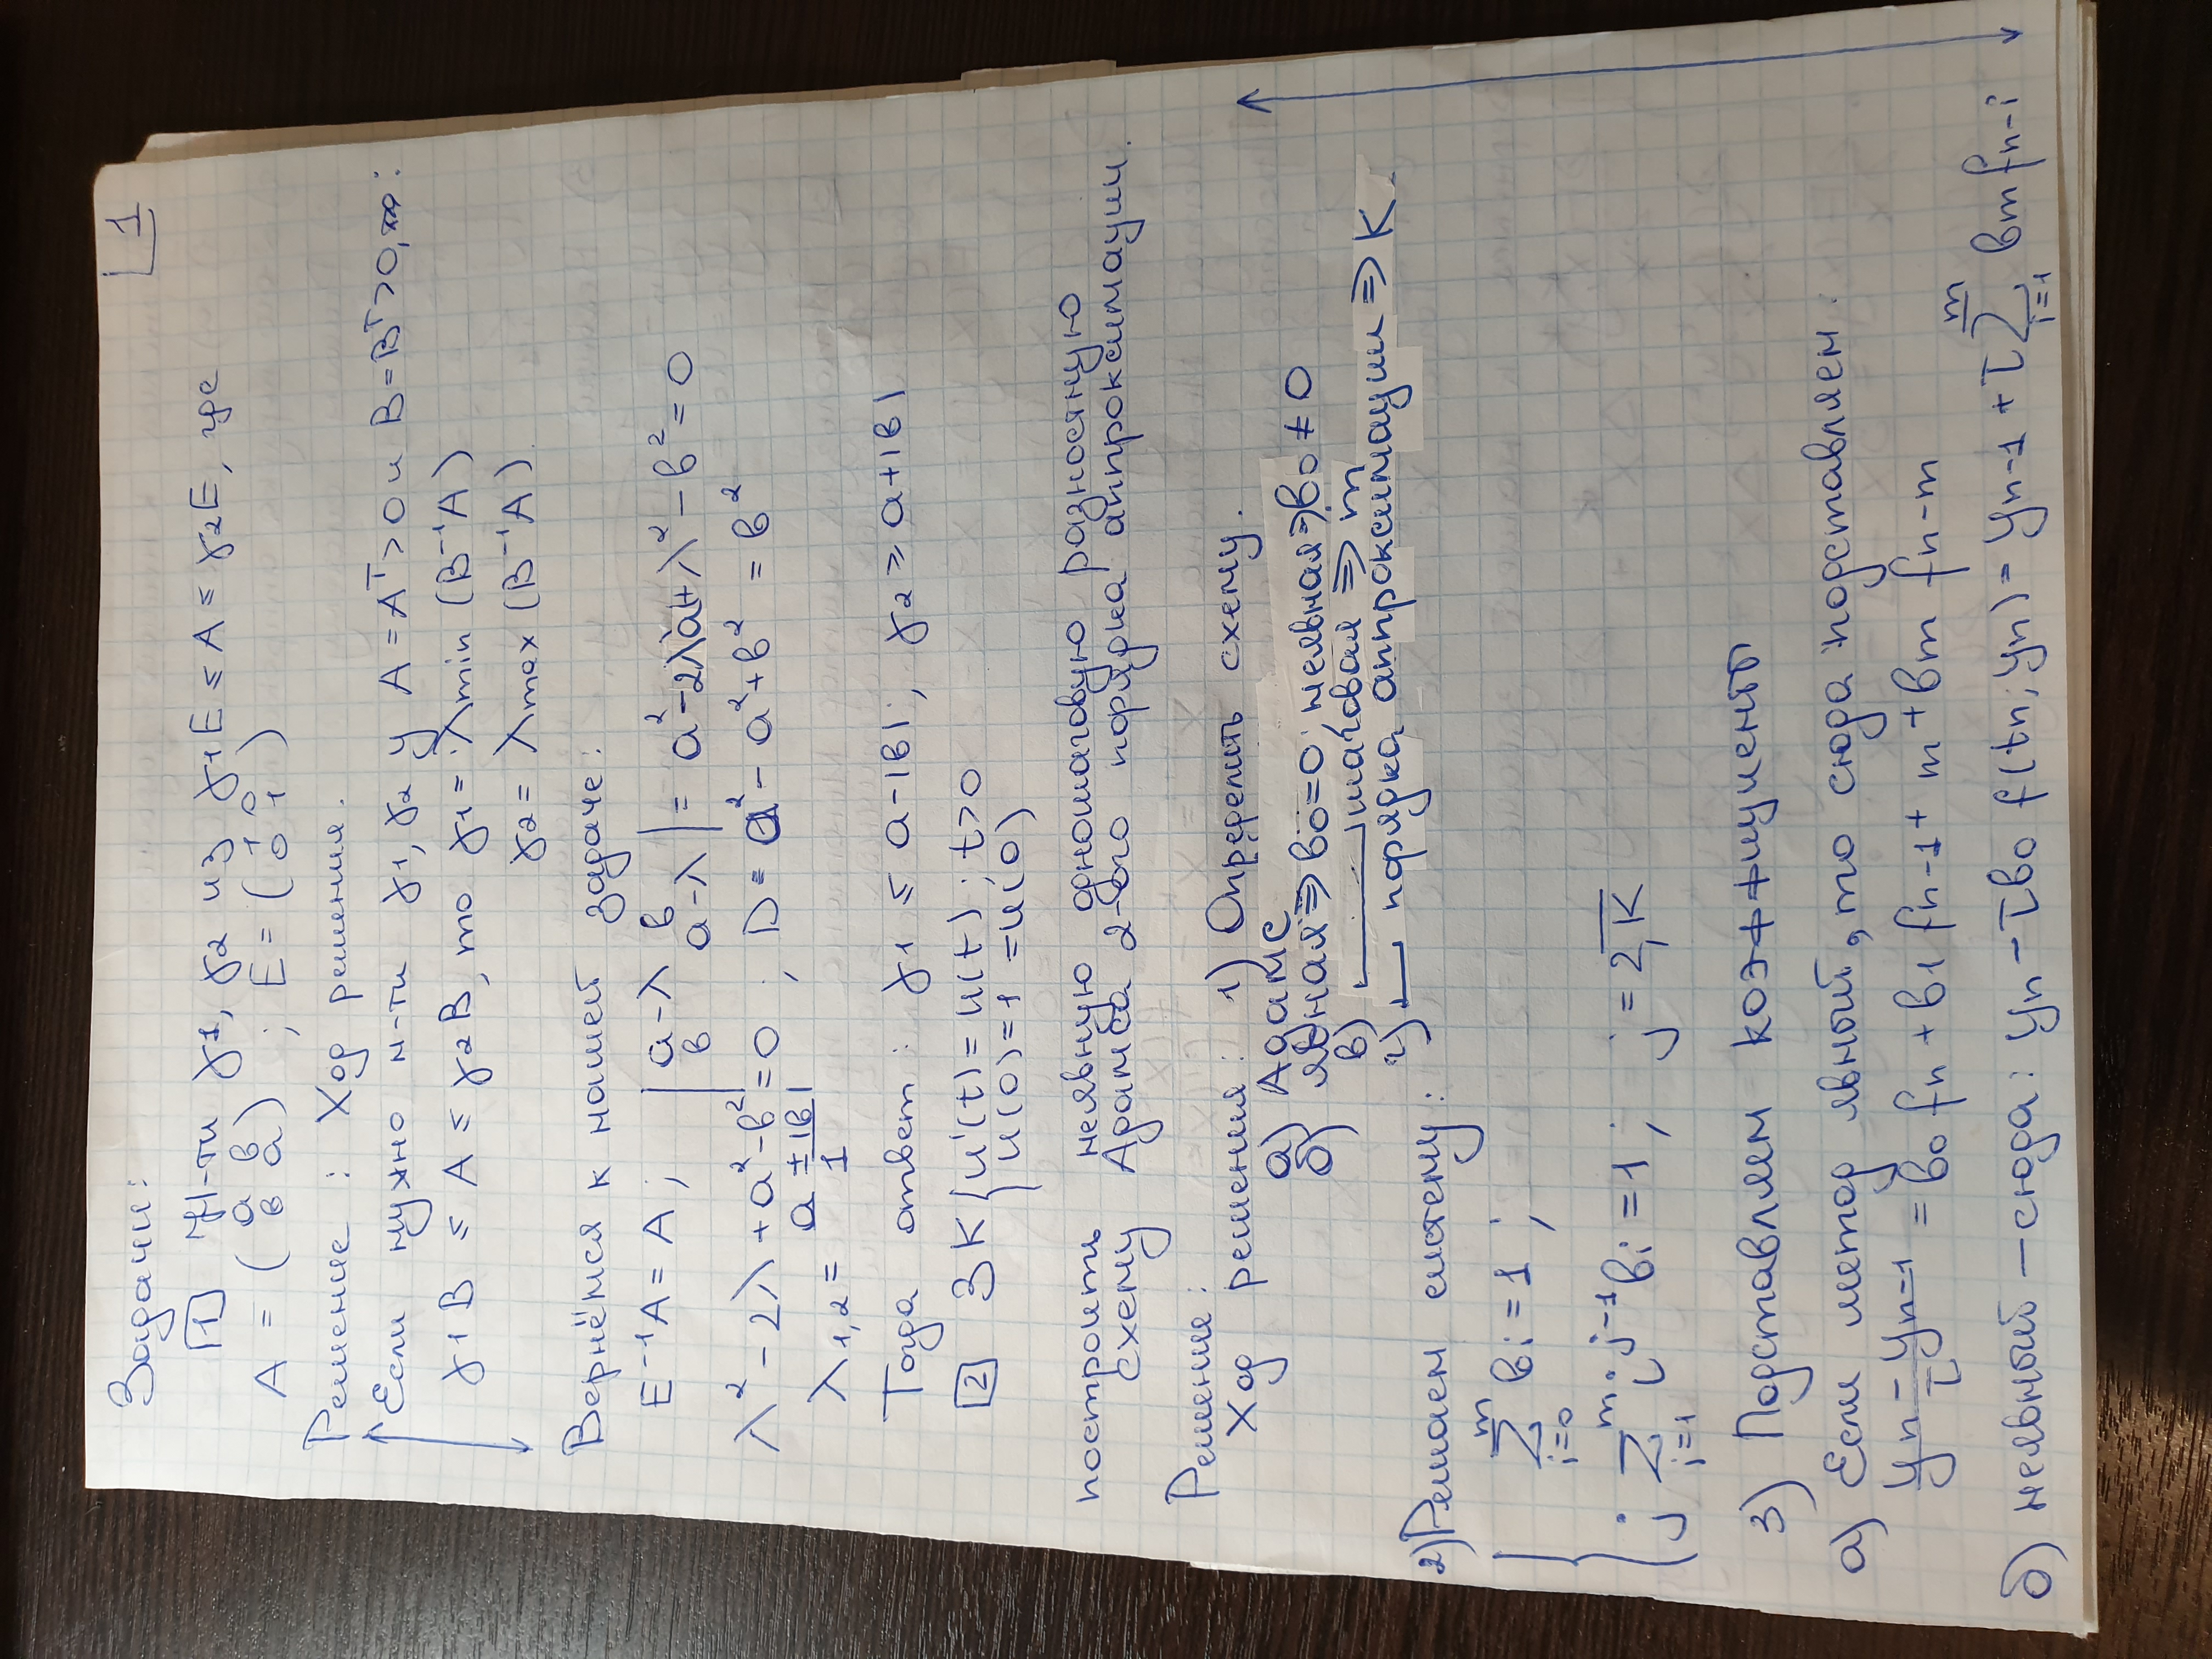 1
Задачи:
1 Н-ти γ1, γ2 из γ1E ≤ A ≤ γ2E, где
A = (a b
b a) ; E = (1 0
0 1)
Решение : Ход решения.
Если нужно н-ти γ1, γ2 у A = Aᵀ > 0 и B = Bᵀ > 0,
γ1B ≤ A ≤ γ2B, то γ1 = λmin (B⁻¹A)
γ2 = λmax (B⁻¹A)
Вернёмся к нашей задаче:
E⁻¹A = A; |a-λ b
b a-λ| = a² - 2λa + λ² - b² = 0
λ² - 2λ + a² - b² = 0 ; D = a² - a² + b² = b²
λ1,2 = (a ± |b|)/1
Тогда ответ: γ1 ≤ a - |b|; γ2 ≥ a + |b|
2 ЗК { u'(t) = u(t); t>0
u(0) = 1 = u(0)
построить неявную одношаговую разностную
схему Адамса 2-ого порядка аппроксимации.
Решение:
Ход решения: 1) Определить схему.
а) Адамс
б) явная => b0 = 0; неявная => b0 ≠ 0
в) шаговая => m
г) порядка аппроксимации => K.
2) Решаем систему:
{ Σ i=0 m bi = 1 ;
j Σ i=1 m i^(j-1) bi = 1; j = 2,K
3) Подставляем коэффициенты
а) Если метод явный, то сюда подставляем:
(yn - yn-1)/τ = b0 fn + b1 fn-1 + m + bm fn-m
б) неявный - сюда: yn - τb0 f(tn; yn) = yn-1 + τ Σ i=1 m bm fn-i